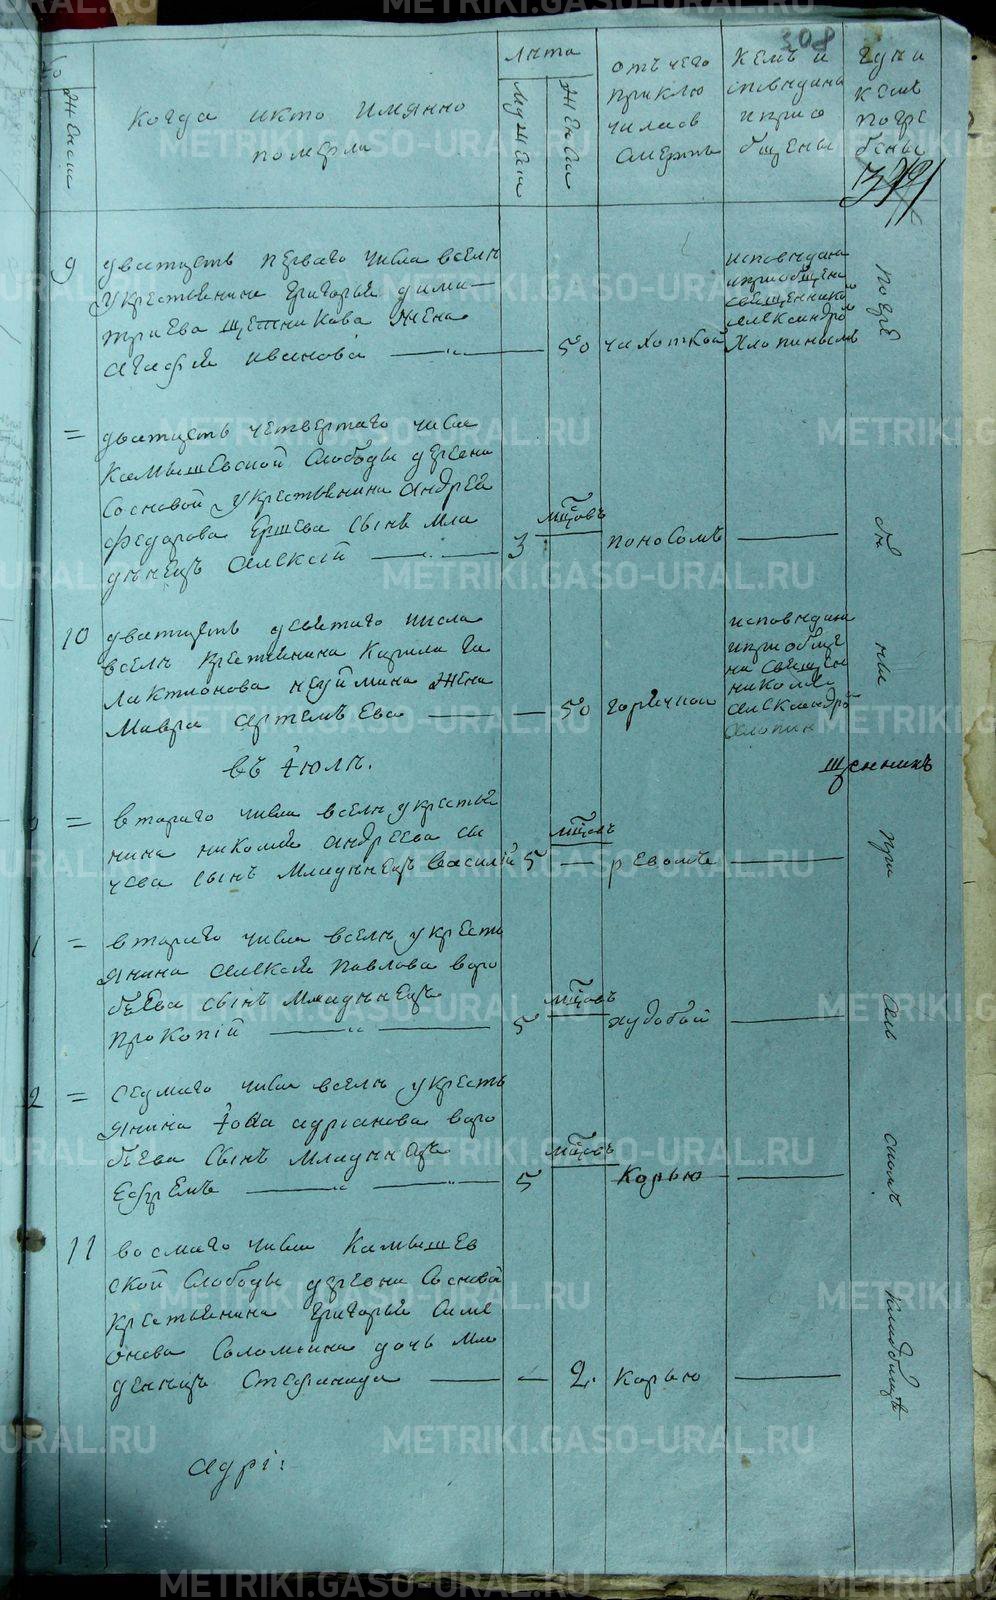 308
женск
когда икто имянно
померли
лѣта
мужск
женск
отъ чего
приклю
чилась
смерть
кемъ и
споведаны
и прио
бщены
гдѣ и
кемъ
погре
бены
9
дватцеть перваго числа вселѣ
укрестьянина григорья дими
триева щетникова жена
агафья иванова
50
чахоткой
исповедана
иприобщена
священникомъ
александромъ
хлопинымъ
=
дватцеть четвертаго числа
камышевской слободы деревни
сосновой укрестьянина андрея
федорова ершева сынъ мла
денецъ алексей
3
мцовъ
поносомъ
10
дватцеть девятаго числа
вселѣ крестьянина карпила га
лактионова неуймина жена
мавра артемьева
50
горячкой
исповедана
иприобще
на священ
никомъ
александро
хлопин
въ iюлѣ.
=
втараго числа вселѣ укрестья
нина николая андреева сы
чева сынъ младенецъ василiй
5
мцовъ
ревомъ
=
втараго числа вселѣ укресть
янина алексея павлова воро
бьева сынъ младенецъ
прокопiй
5
мцовъ
худобой
2
=
седмаго числа вселѣ укресть
янина iова адрiанова воро
бьева сынъ младенецъ
ефремъ
5
мцовъ
корью
11
восмаго числа камышев
ской слободы деревни сосновой
крестьянина григорья симе
онова соломеина дочь мла
денецъ стефанида
2.
корью
при
кладбище
щенникъ
METRIKI.GASO-URAL.RU